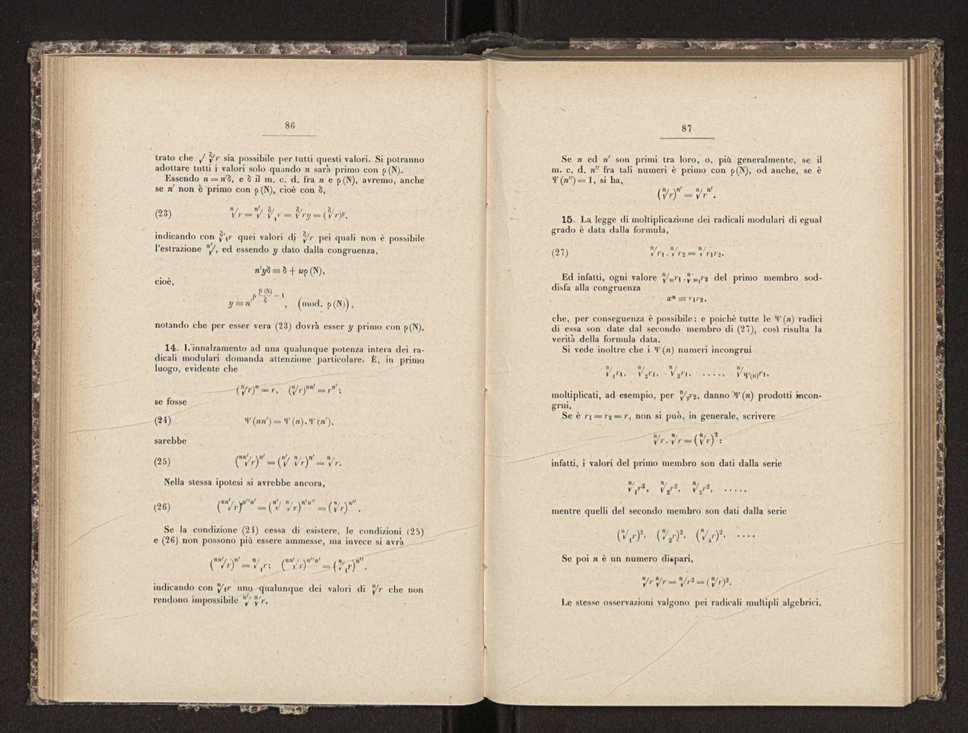 86
trato che √ ᵟ√r sia possibile per tutti questi valori. Si potranno
adottare tutti i valori solo quando n sarà primo con ρ(N).
Essendo n = n'δ, e δ il m. c. d. fra n e ρ(N), avremo, anche
se n' non è primo con ρ(N), cioè con δ,
(23) ⁿ√r = ⁿ'√ ᵟ√₁r = ᵟ√rʸ = (ᵟ√r)ʸ,
indicando con ᵟ√₁r quei valori di ᵟ√r pei quali non è possibile
l'estrazione ⁿ'√, ed essendo y dato dalla congruenza,
n'yδ ≡ δ + uρ(N),
cioè,
(mod. ρ(N)),
notando che per esser vera (23) dovrà esser y primo con ρ(N).
14. L'innalzamento ad una qualunque potenza intera dei ra-
dicali modulari domanda attenzione particolare. È, in primo
luogo, evidente che
(ⁿ√r)ⁿ = r, (ⁿ√r)ⁿⁿ' = rⁿ';
se fosse
(24) Ψ(nn') = Ψ(n).Ψ(n'),
sarebbe
(25) (ⁿⁿ'√r)ⁿ' = (ⁿ'√ ⁿ√r)ⁿ' = ⁿ√r.
Nella stessa ipotesi si avrebbe ancora,
(26) (ⁿⁿ'√r)ⁿ''ⁿ' = (ⁿ'√ ⁿ√r)ⁿ'ⁿ'' = (ⁿ√r)ⁿ''.
Se la condizione (24) cessa di esistere, le condizioni (25)
e (26) non possono più essere ammesse, ma invece si avrà
(ⁿⁿ'√r)ⁿ' = ⁿ√₁r; (ⁿⁿ'√r)ⁿ''ⁿ' = (ⁿ√₁r)ⁿ'',
indicando con ⁿ√₁r uno qualunque dei valori di ⁿ√r che non
rendono impossibile ⁿ'√ ⁿ√r.
87
Se n ed n' son primi tra loro, o, più generalmente, se il
m. c. d. n'' fra tali numeri è primo con ρ(N), od anche, se è
Ψ(n'') = 1, si ha,
(ⁿ√r)ⁿ' = ⁿ√rⁿ'.
15. La legge di moltiplicazione dei radicali modulari di egual
grado è data dalla formula,
(27) ⁿ√r₁.ⁿ√r₂ = ⁿ√r₁r₂.
Ed infatti, ogni valore del primo membro sod-
disfa alla congruenza
xⁿ ≡ r₁r₂,
che, per conseguenza è possibile; e poichè tutte le Ψ(n) radici
di essa son date dal secondo membro di (27), così risulta la
verità della formula data.
Si vede inoltre che i Ψ(n) numeri incongrui
ⁿ√₁r₁, ⁿ√₂r₁, ⁿ√₃r₁, ....., ⁿ√Ψ(n)r₁,
moltiplicati, ad esempio, per ⁿ√₁r₂, danno Ψ(n) prodotti incon-
grui.
Se è r₁ = r₂ = r, non si può, in generale, scrivere
ⁿ√r.ⁿ√r = (ⁿ√r)²;
infatti, i valori del primo membro son dati dalla serie
ⁿ√₁r², ⁿ√₂r², ⁿ√₃r², ....,
mentre quelli del secondo membro son dati dalla serie
(ⁿ√₁r)², (ⁿ√₂r)², (ⁿ√₃r)², ....
Se poi n è un numero dispari,
ⁿ√r ⁿ√r = ⁿ√r² = (ⁿ√r)².
Le stesse osservazioni valgono pei radicali multipli algebrici,